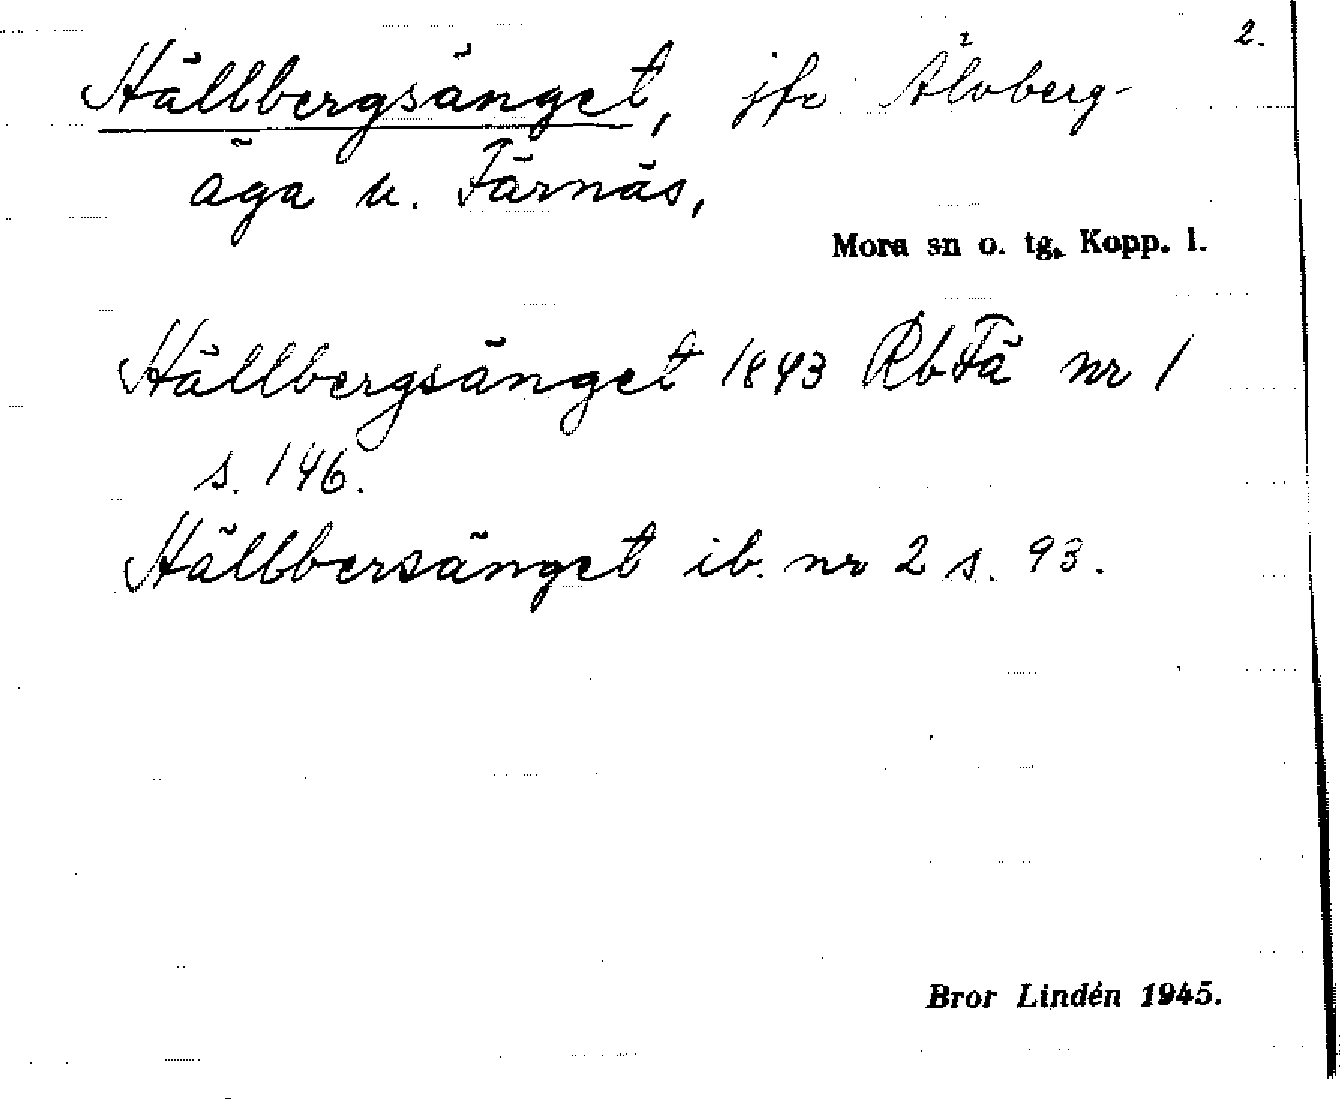 2.
Hällbergsänget, jfr Älvberg-
äga u. Färnäs,
Mora sn o. tg. Kopp. l.
Hällbergsänget 1843 RbFä nr 1
s. 146.
Hällbersänget ib. nr 2 s. 93.
Bror Lindén 1945.